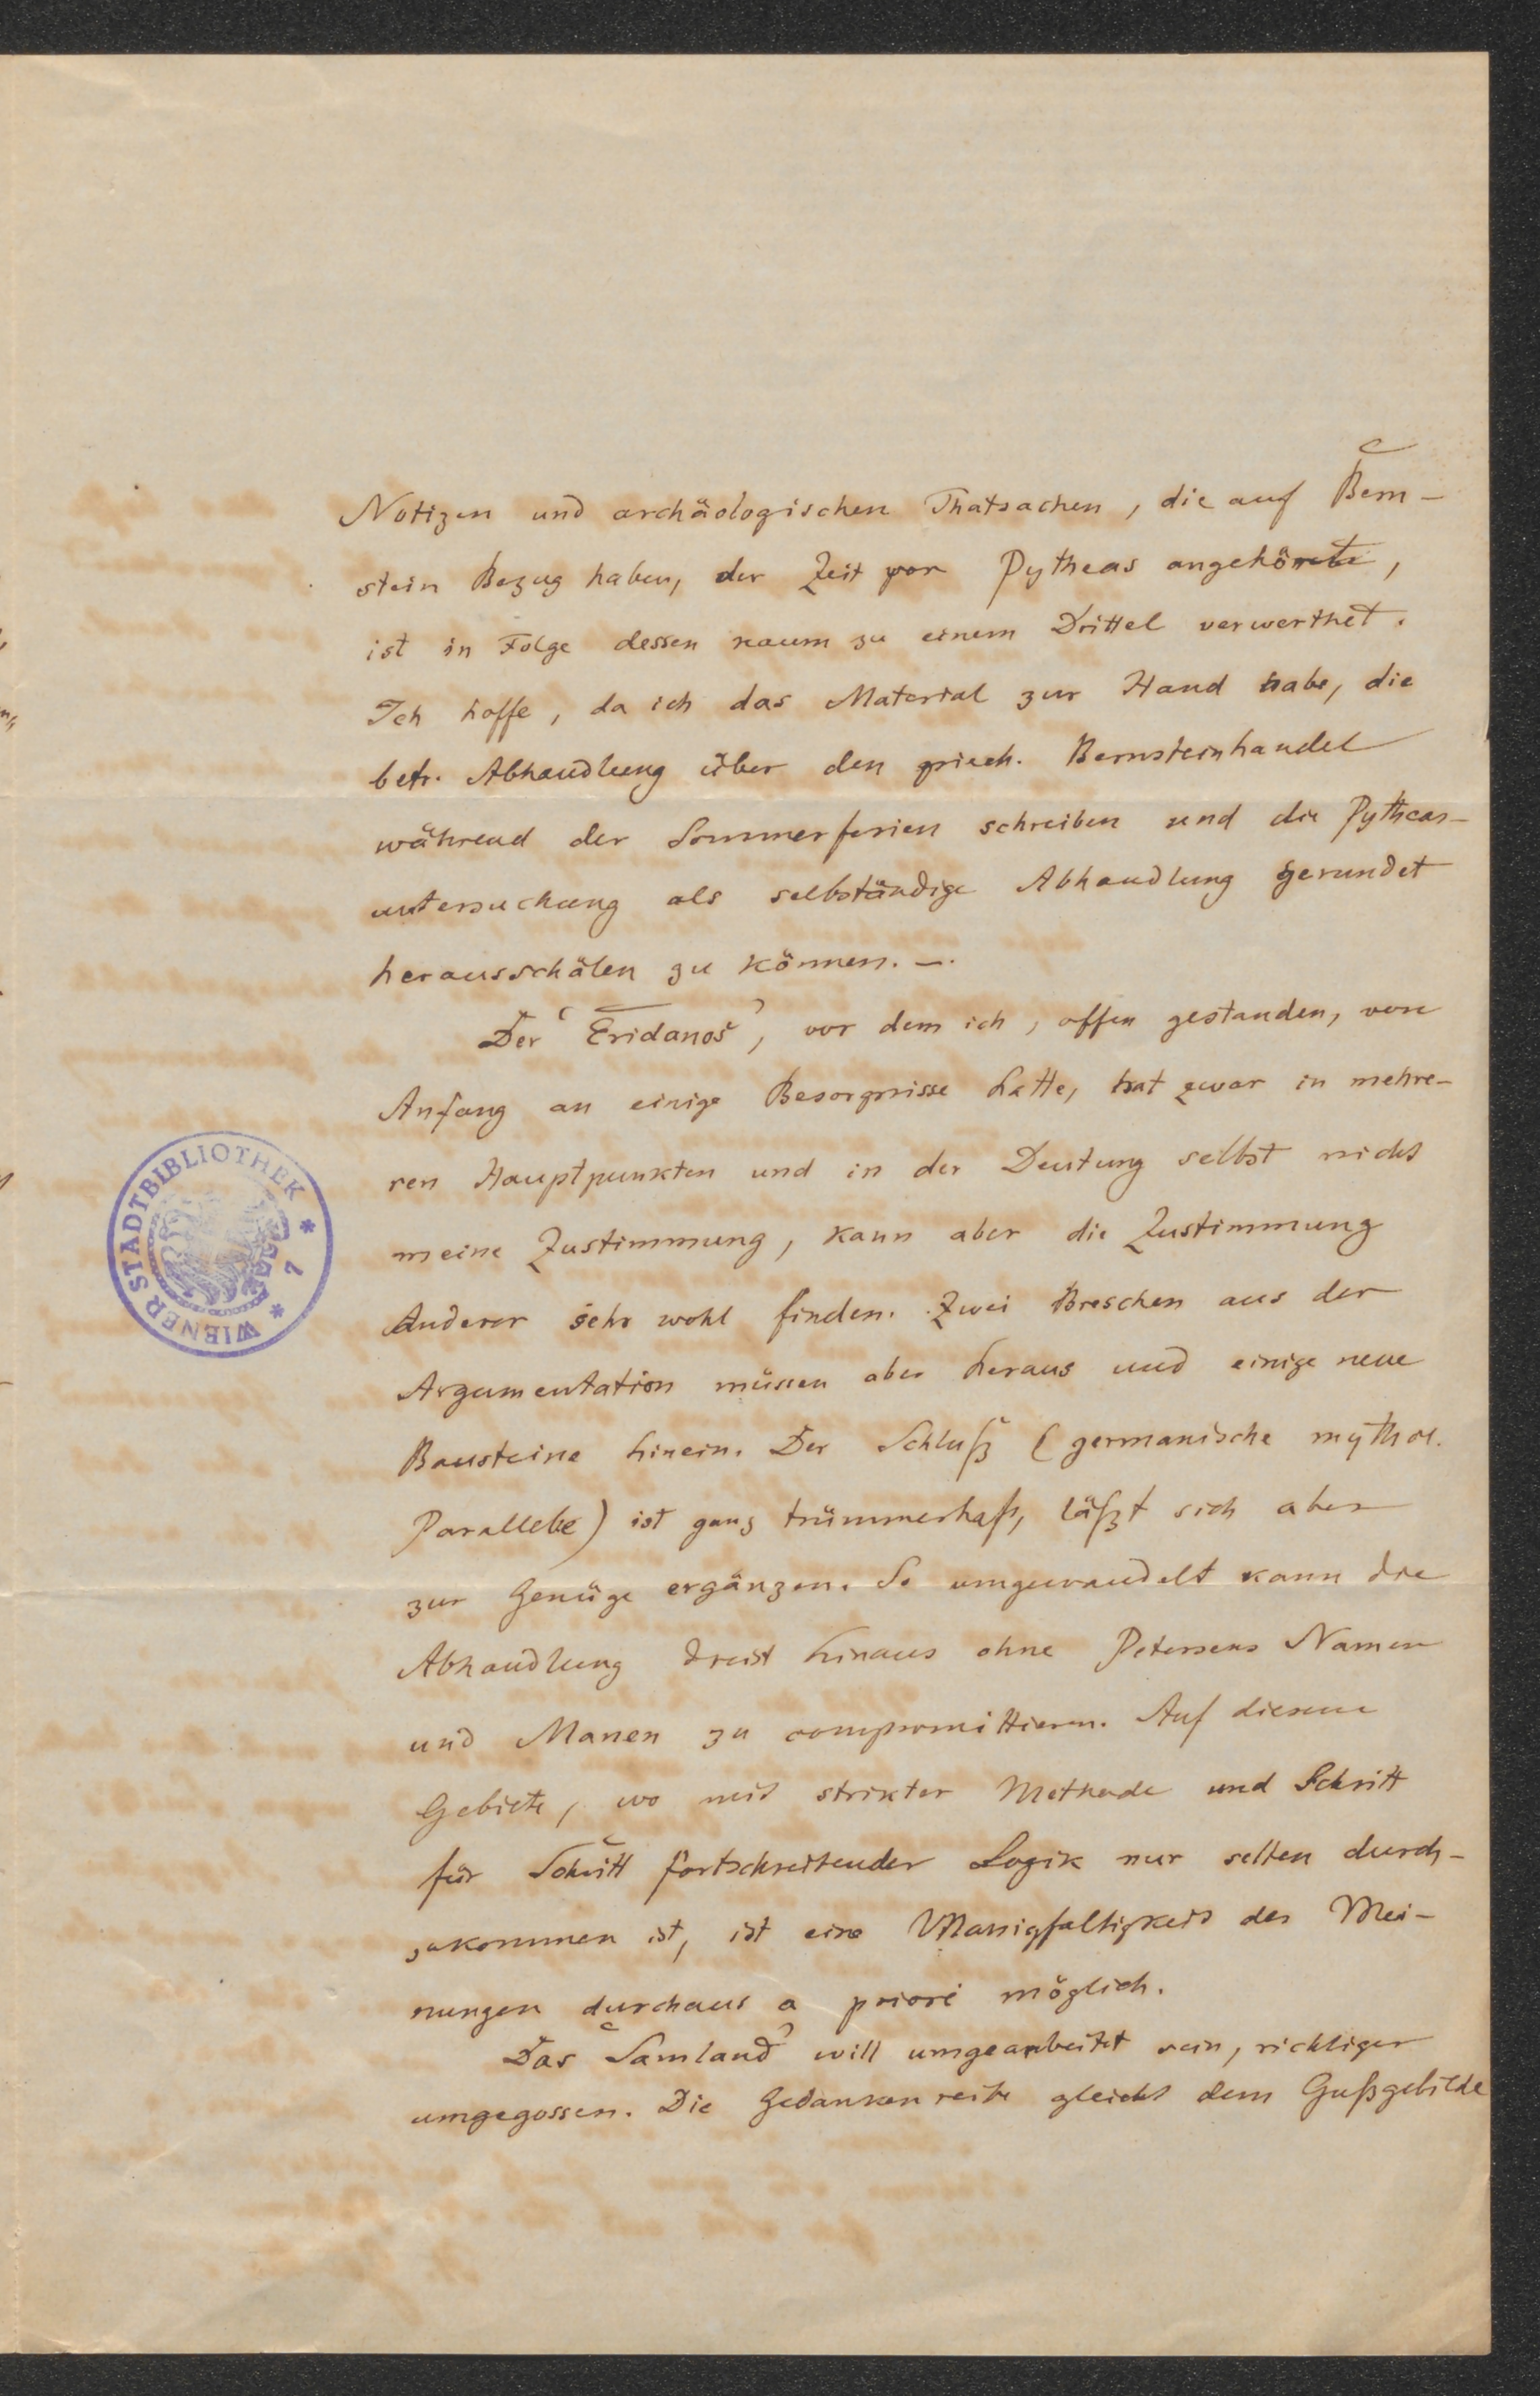 Notizen und archäologischen Thatsachen, die auf Bern-
stein Bezug haben, der Zeit vor Pytheas angehörte,
ist in Folge dessen kaum zu einem Drittel verwerthet.
Ich hoffe, da ich das Material zur Hand habe, die
betr. Abhandlung über den griech. Bernsteinhandel
während der Sommerferien schreiben und die Pytheas-
untersuchung als selbständige Abhandlung gerundet
herausschälen zu können. —.
Der 'Eridanos', vor dem ich, offen gestanden, von
Anfang an einige Besorgnisse hatte, hat zwar in mehre-
ren Hauptpunkten und in der Deutung selbst nicht
meine Zustimmung, kann aber die Zustimmung
Anderer sehr wohl finden. Zwei Breschen aus der
Argumentation müssen aber heraus und einige neue
Bausteine hinein. Der Schluß (germanische mythol.
Parallele) ist ganz trümmerhaft, läßt sich aber
zur Genüge ergänzen. So umgewandelt kann die
Abhandlung dreist hinaus ohne Petersens Namen
und Manen zu compromittieren. Auf diesem
Gebiete, wo mit strikter Methode und Schritt
für Schritt fortschreitender Logik nur selten durch-
zukommen ist, ist eine Mannigfaltigkeit der Mei-
nungen durchaus a priori möglich.
Das 'Samland' will umgearbeitet sein, richtiger
umgegossen. Die Gedankenreihe gleicht dem Gußgebilde
WIENER STADTBIBLIOTHEK * 7 *